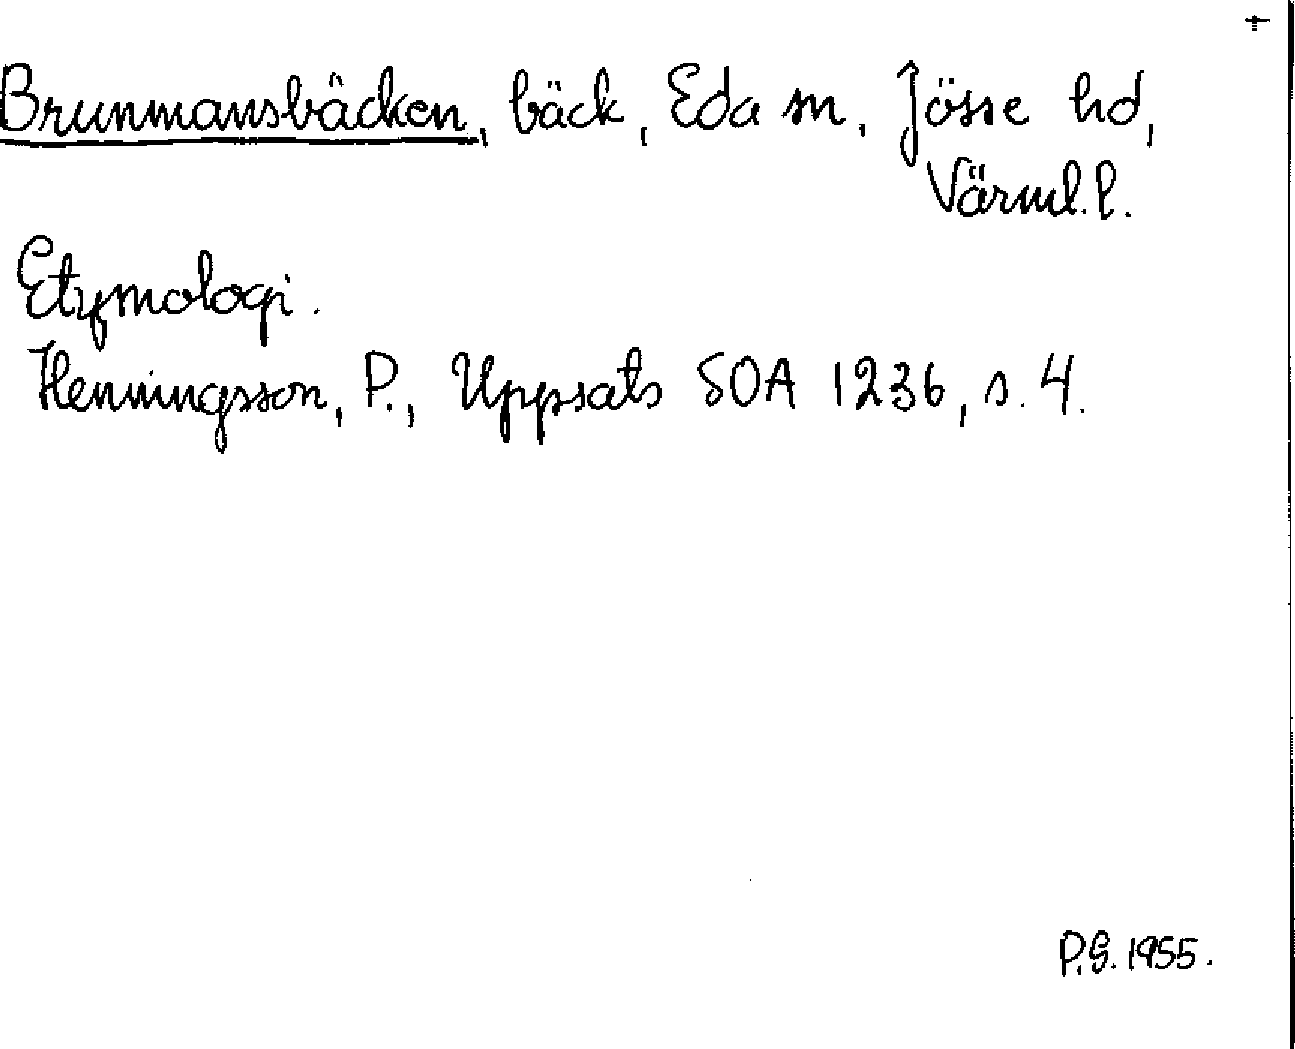 Brunmansbäcken, bäck, Eda sn, Jösse hd,
Värml. l.
Etymologi.
Henningsson, P., Uppsats SOA 1236, s. 4.
P.G. 1955.